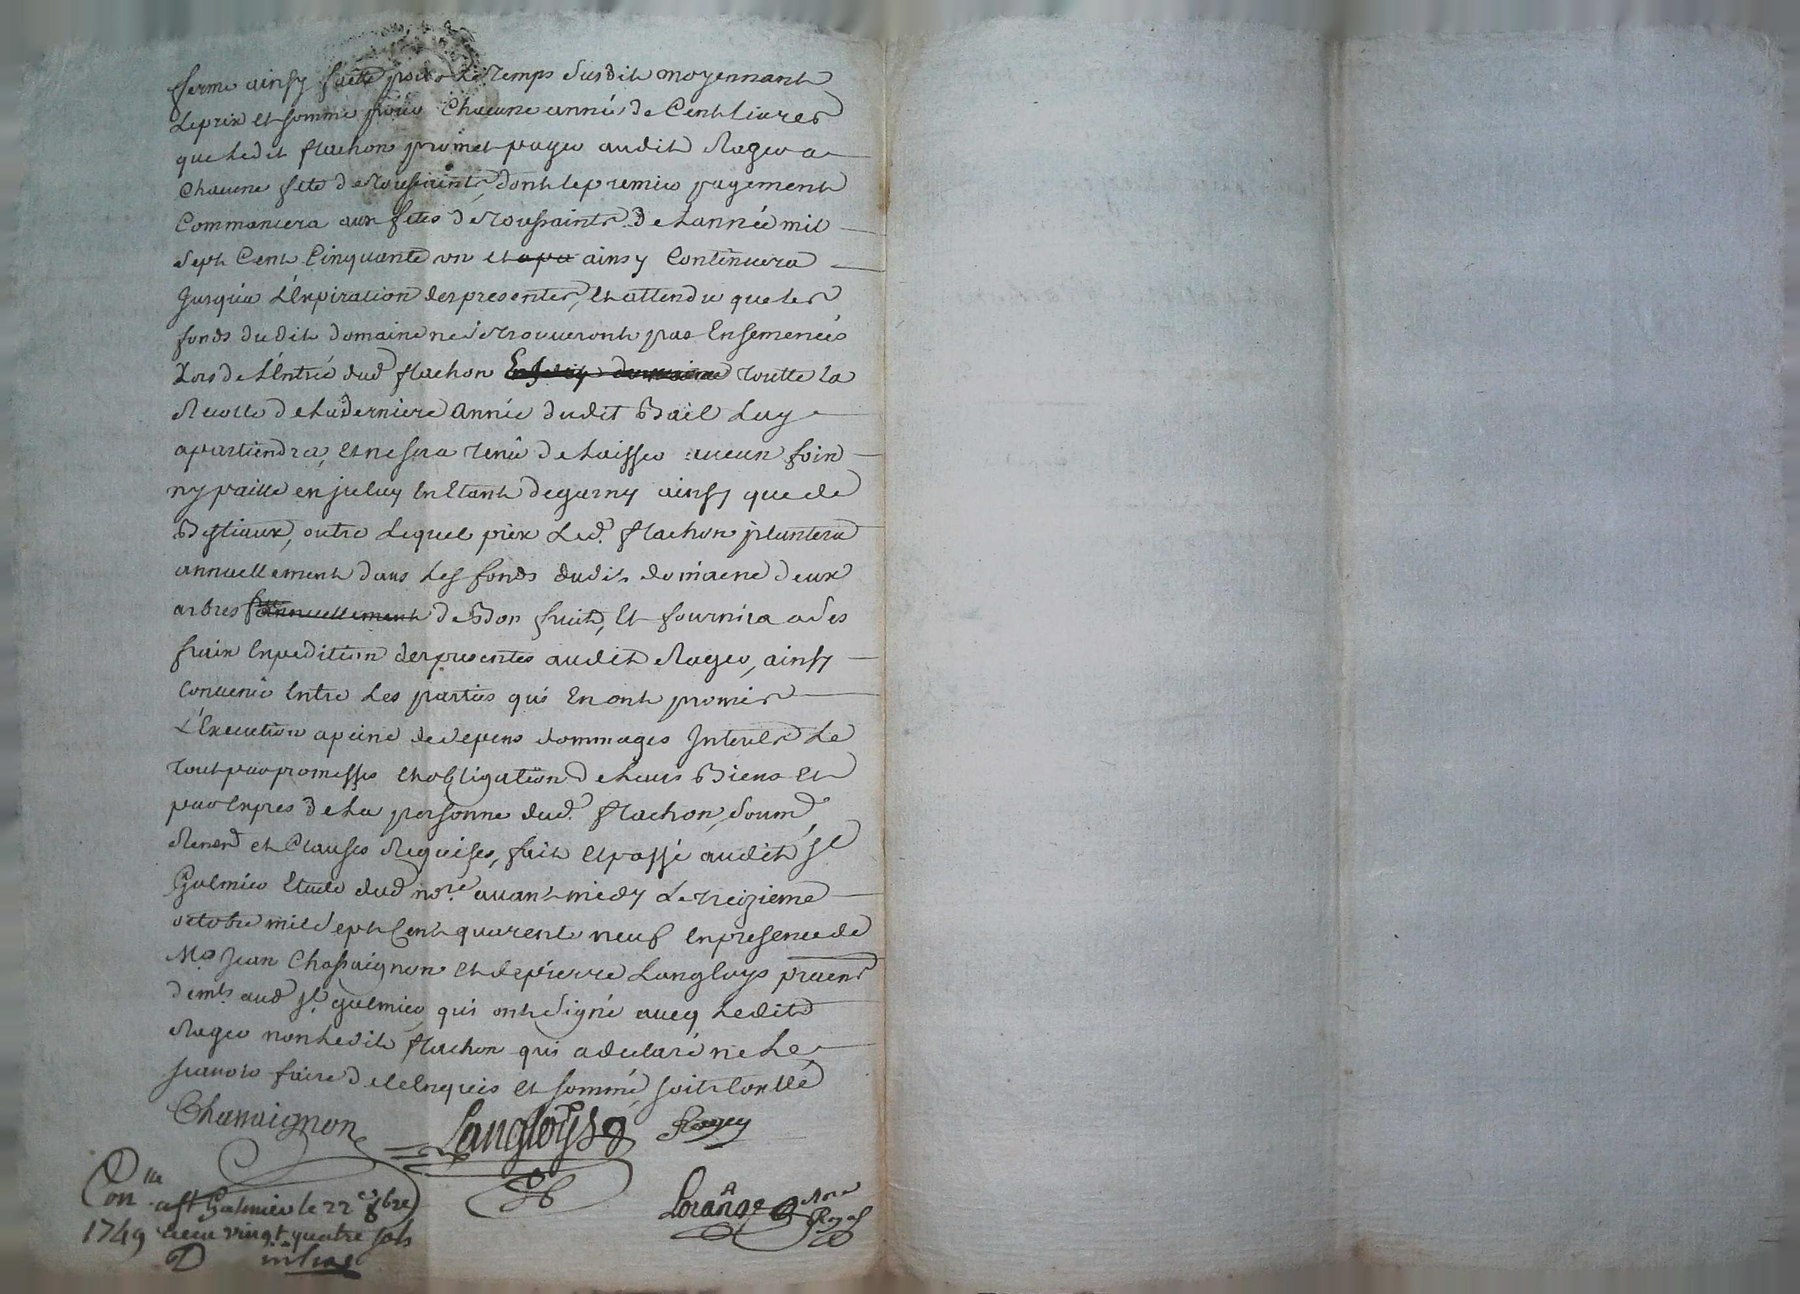 ferme ainsy faitte pour le temps susdit moyennant
Le prix et somme pour Chacune année de Cent livres
que Ledit flachon promet payer audit Roger a
Chacune fete de Toussaint, dont le premier payement
Commancera aux fetes de Toussaints de Lannée mil
Sept Cent Cinquante un et ainsy Continuera
Jusqu'a L'Expiration des presentes, Et attendu que les
fonds dudit domaine ne se trouveront pas Ensemencés
Lors de L'Entrée dud flachon toutte la
Recolte de La derniere année dudit Bail Luy
apartiendra, Et ne sera tenu de Laisser aucun foin
ny paille en jceluy En Etant degarny ainsy que de
Bestiaux, outre Lequel prix Led. flachon plantera
annuellement dans Les fonds dudit domaine deux
arbres de Bon fruit, Et fournira a ses
fraix Expedition des presentes audit Roger, ainsy
Convenu Entre Les parties qui En ont promis
L'Execution a peine de depens dommages Interets Le
tout par promesses et obligation de Leurs Biens Et
par Expres de La personne dud. flachon, soum
Renon et Clauses Requises, fait Et passé audit St
Galmier Etude dud no.re avant midy Le treizieme
octobre mil Sept Cent quarente neuf En presence de
Me Jean Chassaignon et de pierre Langloys
dem.ts aud St. galmier, qui ont Signé avec Ledit
Roger non Ledit flachon qui a declaré ne Le
scavoir faire de ce Enquis et sommé, soit Conllé
Chassaignon Langloys Roger
Con.lle a St Galmier le 22e 8bre Lorange Nore Royal
1749 Receu vingt quatre sols